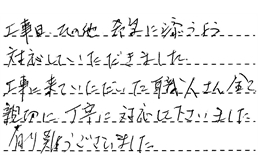 工事日、その他 予定に添うよう
対応していただきました
工事に来ていただいた職人さん全て
親切に丁寧に対応して下さいました
有り難うございました